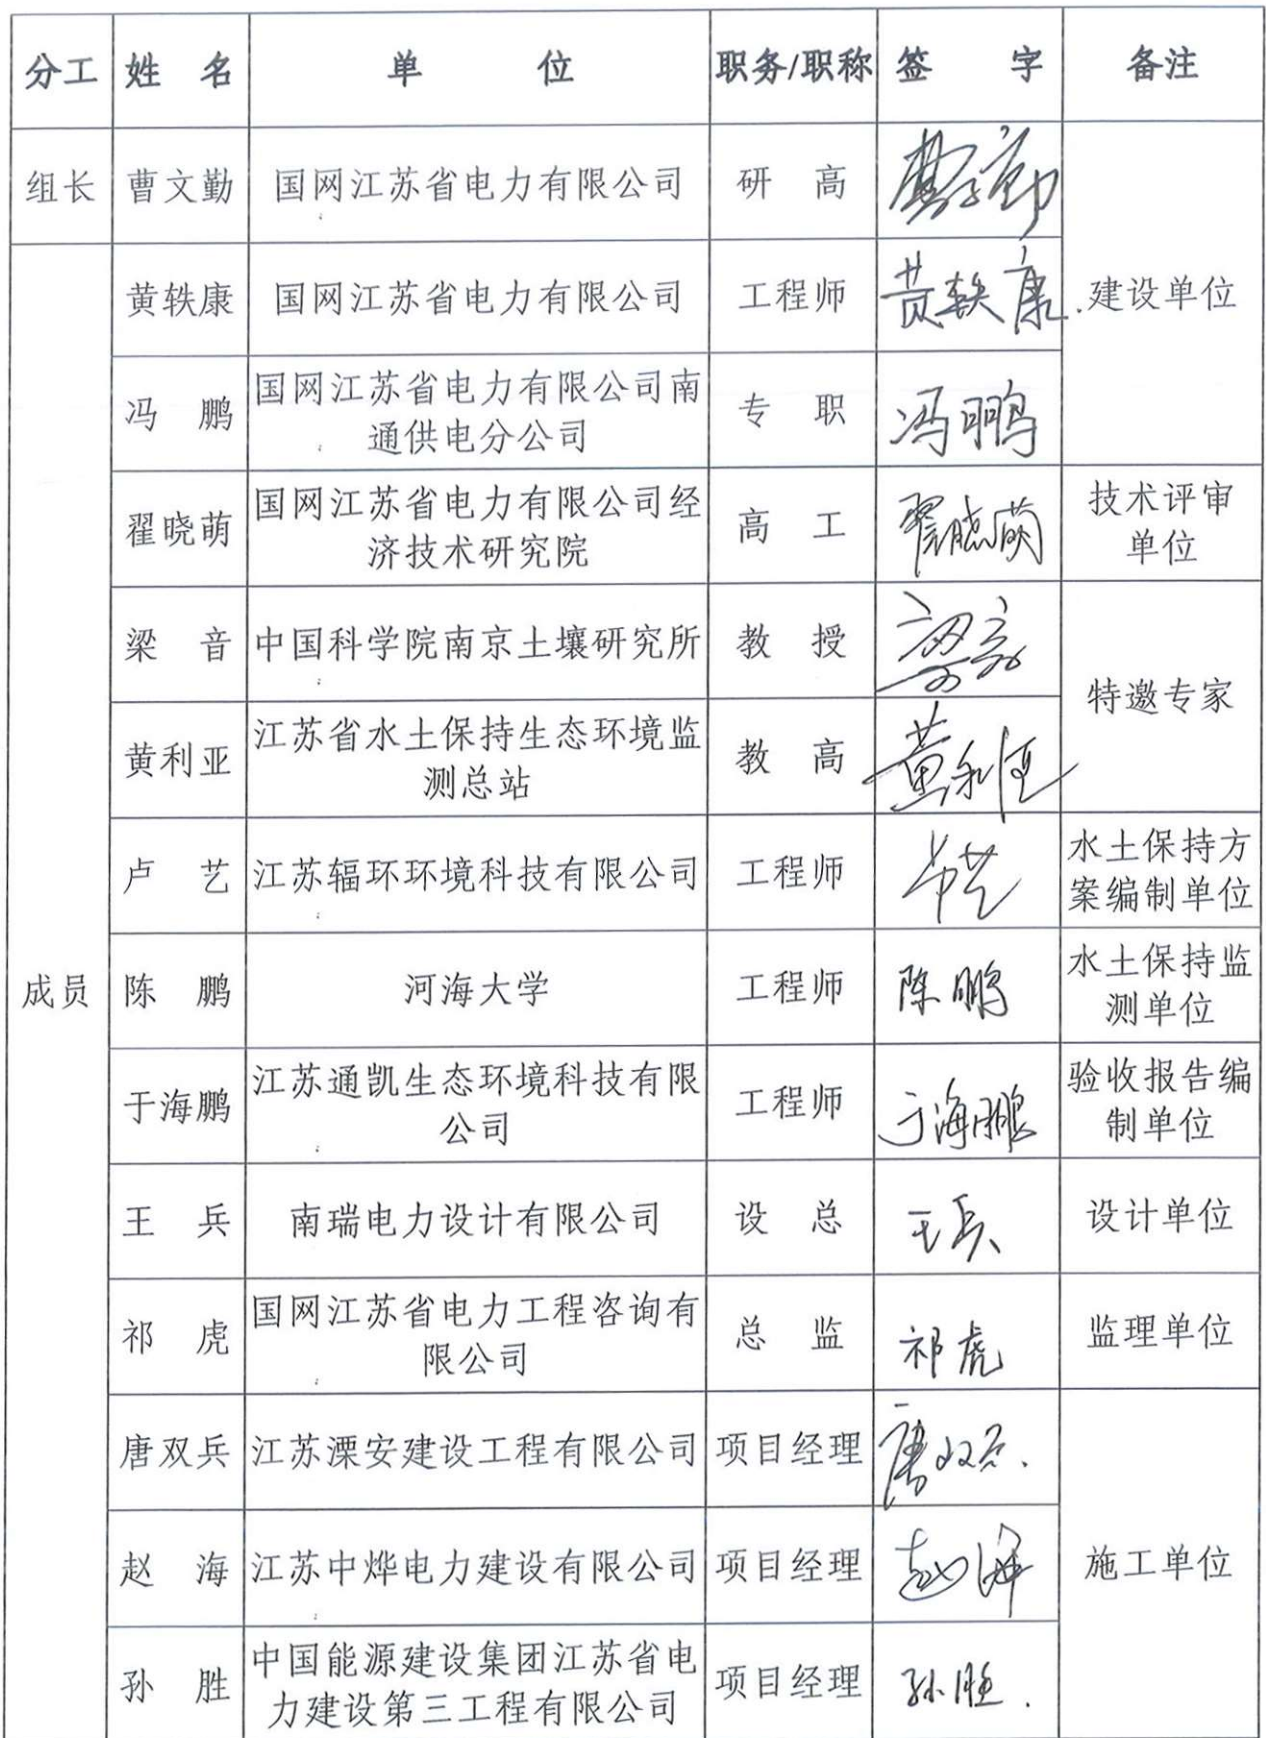 分工 姓 名 单 位 职务/职称 签 字 备注
组长 曹文勤 国网江苏省电力有限公司 研 高 曹文勤
黄轶康 国网江苏省电力有限公司 工程师 黄轶康 建设单位
冯 鹏 国网江苏省电力有限公司南
通供电分公司 专 职 冯鹏
翟晓萌 国网江苏省电力有限公司经
济技术研究院 高 工 翟晓萌 技术评审
单位
梁 音 中国科学院南京土壤研究所 教 授 梁音 特邀专家
黄利亚 江苏省水土保持生态环境监
测总站 教 高 黄利亚
卢 艺 江苏辐环环境科技有限公司 工程师 卢艺 水土保持方
案编制单位
成员 陈 鹏 河海大学 工程师 陈鹏 水土保持监
测单位
于海鹏 江苏通凯生态环境科技有限
公司 工程师 于海鹏 验收报告编
制单位
王 兵 南瑞电力设计有限公司 设 总 王兵 设计单位
祁 虎 国网江苏省电力工程咨询有
限公司 总 监 祁虎 监理单位
唐双兵 江苏溧安建设工程有限公司 项目经理 唐双兵
赵 海 江苏中烨电力建设有限公司 项目经理 赵海 施工单位
孙 胜 中国能源建设集团江苏省电
力建设第三工程有限公司 项目经理 孙胜